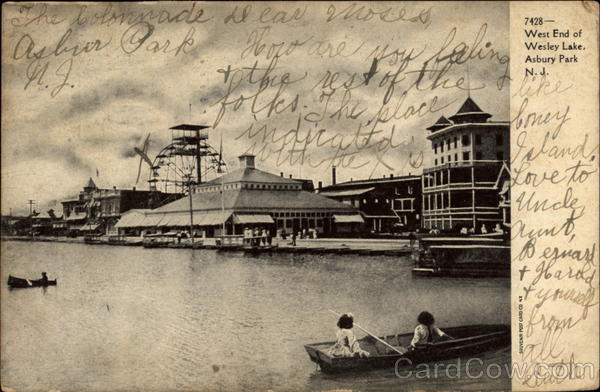 The Colonnade
Asbury Park
N.J.
Dear Moses,
How are you feeling
& the rest of the
folks. The place
indicated
with the x's
7428—
West End of
Wesley Lake,
Asbury Park
N. J.
like
Coney
Island.
Love to
Uncle,
Aunt,
Bernard
& Harold
& yourself
from
all
Ruth
SOUVENIR POST CARD CO. N.Y.
CardCow.com